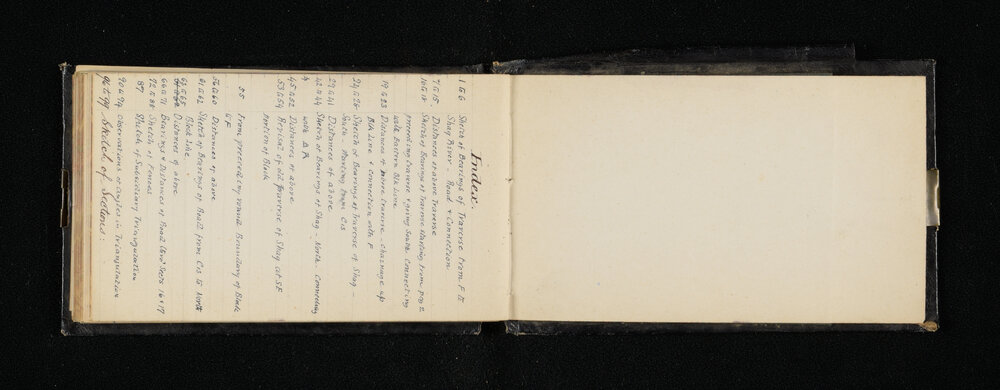 Index.
1 to 6 Sketch of Bearings of Traverse from F to
Shag River - Road & Connection
7 to 15 Distances of above Traverse
16 to 18 Sketch of Bearings of Traverse starting from peg 2
preceding traverse & going South connecting
with Eastern Blk Line
19 to 23 Distances of above traverse - chainage up
Blk Line & connection with F
24 to 28 Sketch of Bearings of Traverse of Shag -
South - starting from C15
29 to 41 Distances of above
42 to 44 Sketch of Bearings of Shag - North connecting
with Δ A
45 to 52 Distances of above
53 to 54 Revisal of old traverse of Shag at SE
portion of Block
55 From preceding round Boundary of Block
to F
56 to 60 Distances of above
61 to 62 Sketch of Bearings of Road from C15 to North
Block Line
63 to 65 Distances of above
66 to 71 Bearings & Distances of Road Sects 16 & 17
72 to 88 Sketch of Fences
89 Sketch of Subsidiary Triangulation
90 to 94 Observations of angles in Triangulation
96 to 99 Sketch of Sections: